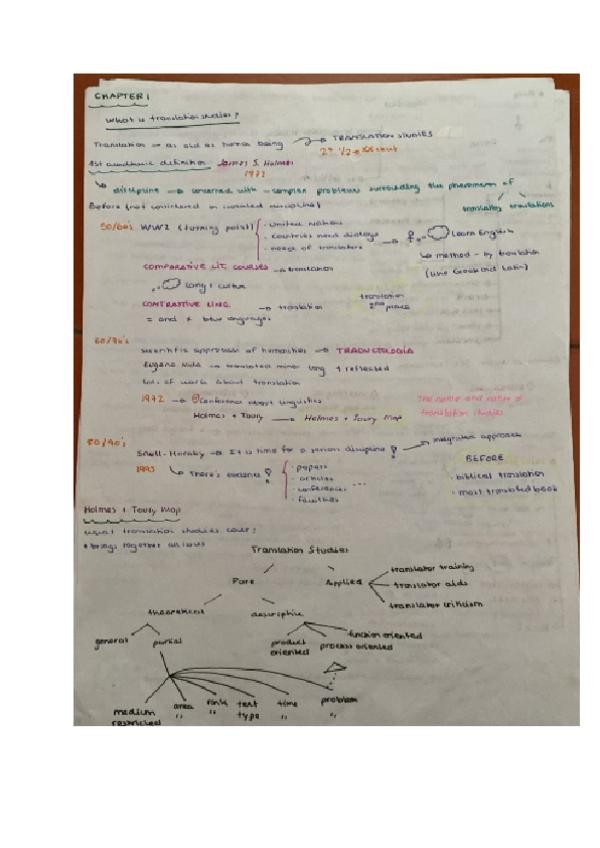 CHAPTER 1
What is translation studies?
Translation → as old as human being → TRANSLATION STUDIES
1st academic definition James S. Holmes
1972
↳ discipline → concerned with → complex problems surrounding the phenomenon of
translating translations
Before (not considered an isolated discipline)
50/60s WW2 (turning point)
· United Nations
· countries need dialogue
· need of translators
→ Learn English
↳ method → by translation
(like Greek and Latin)
COMPARATIVE LIT. COURSES → translation
lang + culture
CONTRASTIVE LING. → translation
= and ≠ btw languages
translation
2nd place
60/70's
scientific approach of humanities → TRADUCTOLOGÍA
Eugene Nida → translated minor lang. + reflected
lot of work about translation
1972 → Conference about linguistics
Holmes + Toury → Holmes + Toury Map
The name and nature of
translation studies
80/90's
Snell-Hornby → It is time for a serious discipline → integrated approach
1995 ↳ There's evidence
· papers
· articles
· conferences
· faculties
...
BEFORE
· biblical translation
· most translated book
Holmes + Toury Map
what translation studies cover?
brings together
Translation Studies
Pure Applied
translator training
translator aids
translator criticism
theoretical descriptive
general partial
product oriented
process oriented
function oriented
medium restricted
area "
rank "
text type
time "
problem "